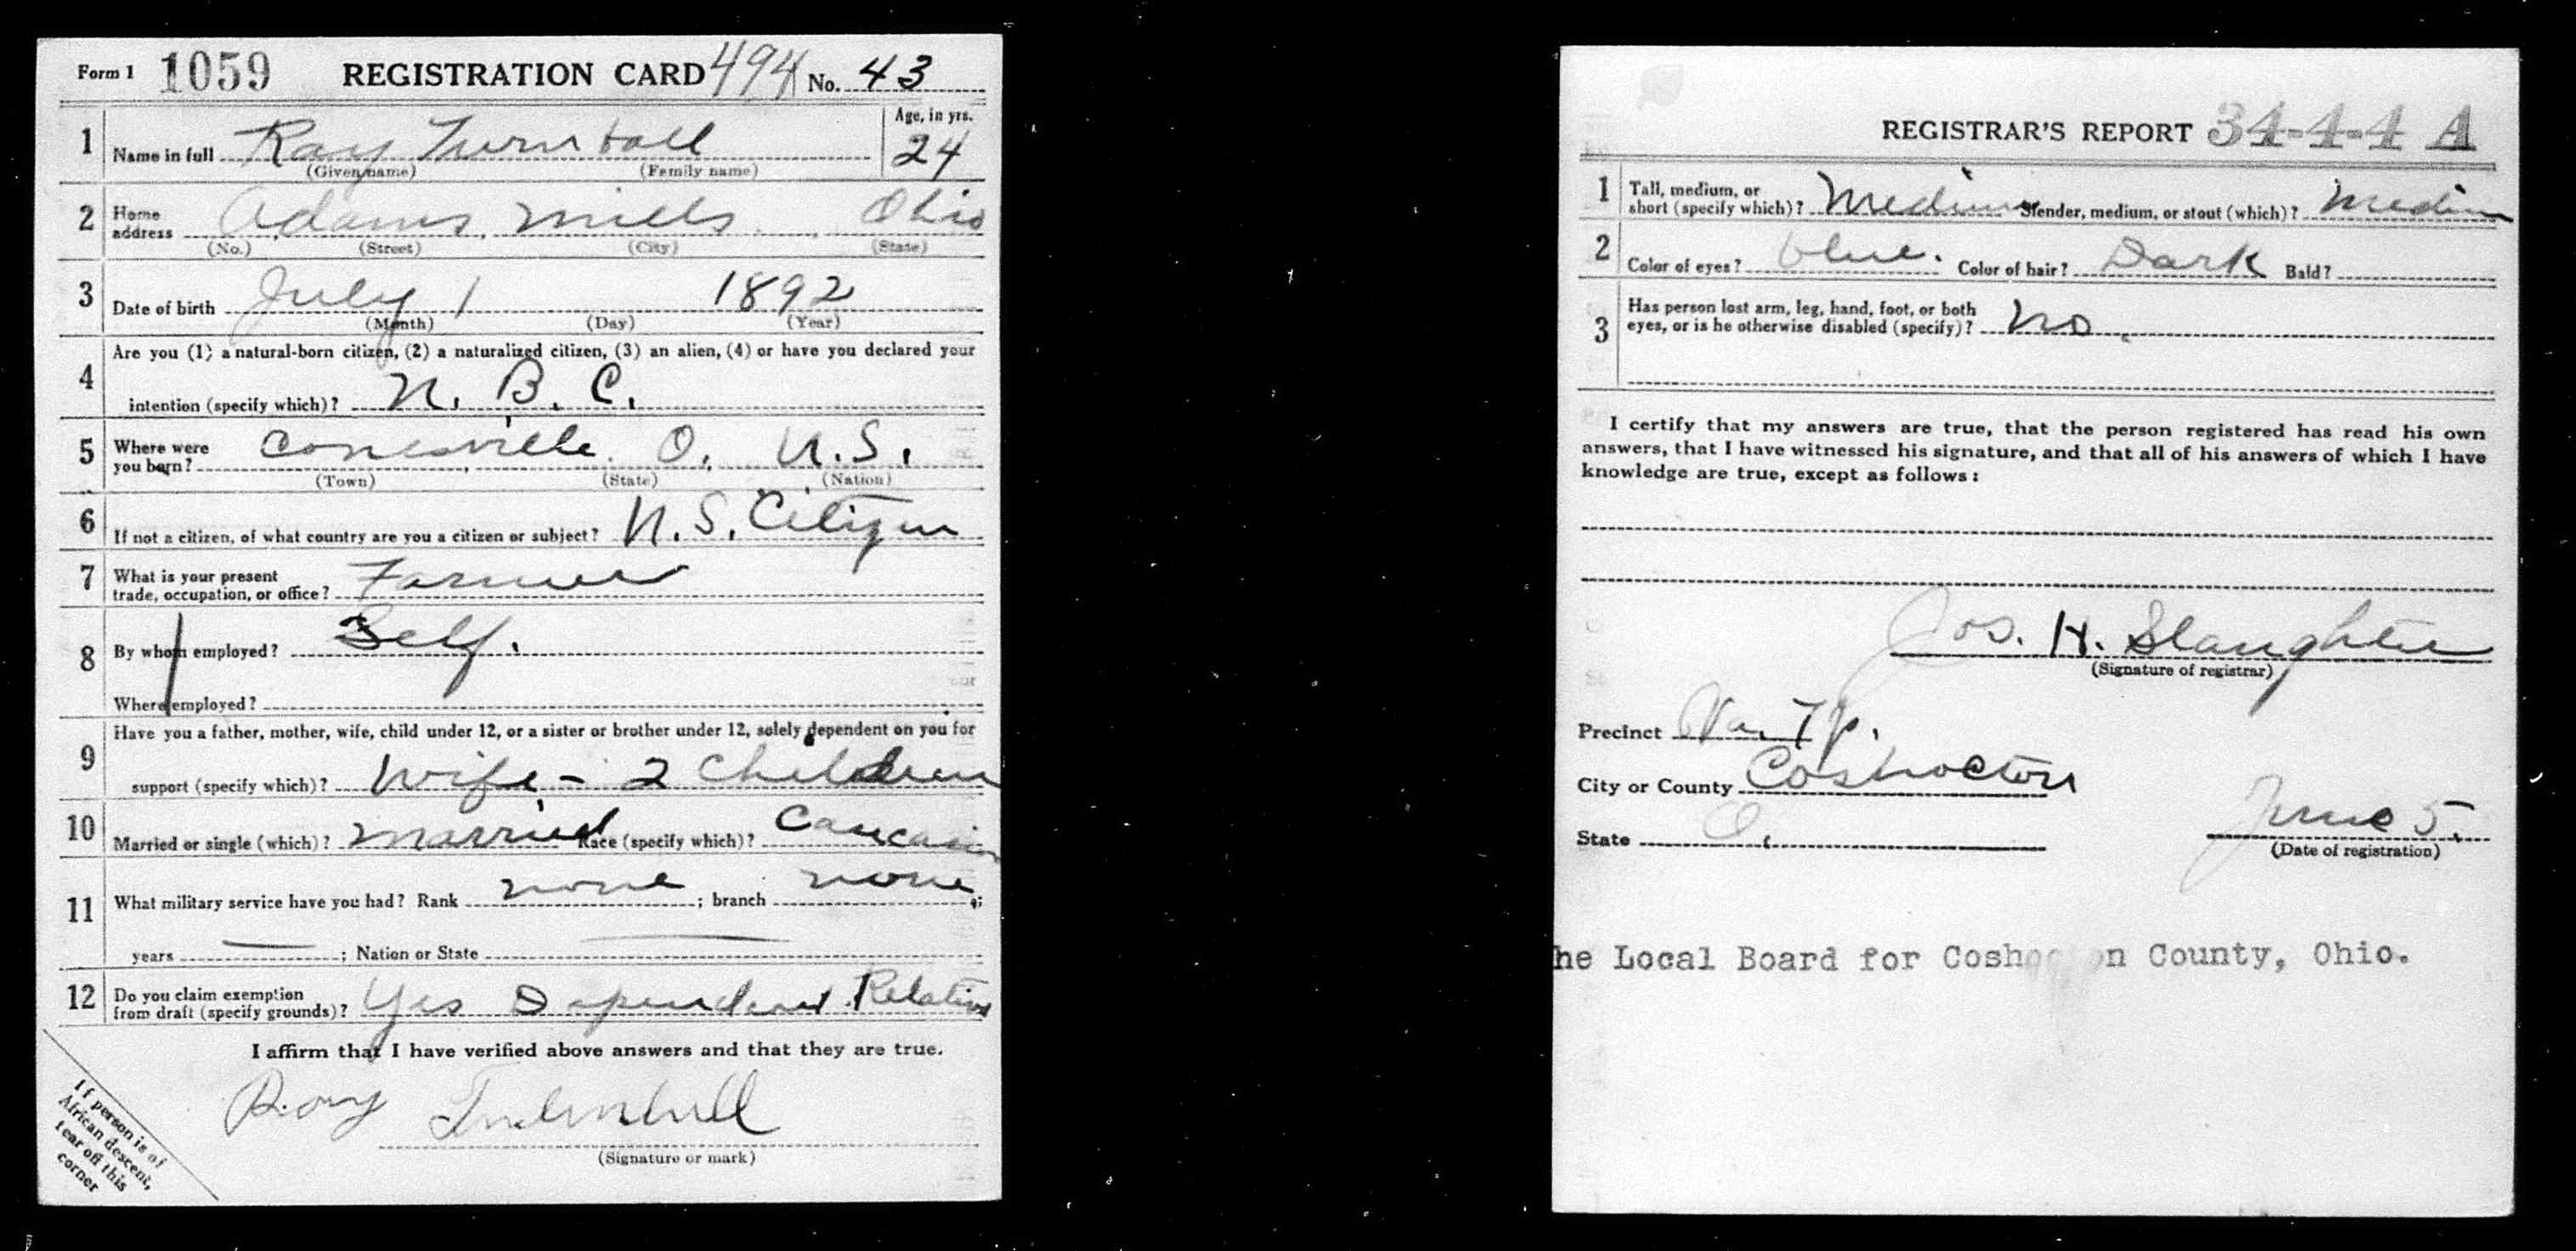 Form 1 1059 REGISTRATION CARD 494 No. 43
1 Name in full Ray Turnball Age, in yrs. 24
(Given name) (Family name)
2 Home address Adams Mills Ohio
(No.) (Street) (City) (State)
3 Date of birth July 1 1892
(Month) (Day) (Year)
4 Are you (1) a natural-born citizen, (2) a naturalized citizen, (3) an alien, (4) or have you declared your
intention (specify which)? N. B. C.
5 Where were you born? Conesville O. U.S.
(Town) (State) (Nation)
6 If not a citizen, of what country are you a citizen or subject? U.S. Citizen
7 What is your present trade, occupation, or office? Farmer
8 By whom employed? Self.
Where employed?
9 Have you a father, mother, wife, child under 12, or a sister or brother under 12, solely dependent on you for
support (specify which)? Wife - 2 Children
10 Married or single (which)? married Race (specify which)? Caucasian
11 What military service have you had? Rank none ; branch none ;
years ; Nation or State
12 Do you claim exemption from draft (specify grounds)? Yes Dependent Relatives
I affirm that I have verified above answers and that they are true.
Ray
(Signature or mark)
If person is of
African descent,
tear off this
corner
REGISTRAR'S REPORT 34-4-4 A
1 Tall, medium, or short (specify which)? Medium Slender, medium, or stout (which)? Medium
2 Color of eyes? blue. Color of hair? Dark Bald?
3 Has person lost arm, leg, hand, foot, or both
eyes, or is he otherwise disabled (specify)? No.
I certify that my answers are true, that the person registered has read his own
answers, that I have witnessed his signature, and that all of his answers of which I have
knowledge are true, except as follows:
Jos. H. Slaughter
(Signature of registrar)
Precinct Va. Tp.
City or County Coshocton
State O. June 5.
(Date of registration)
he Local Board for Coshocton County, Ohio.